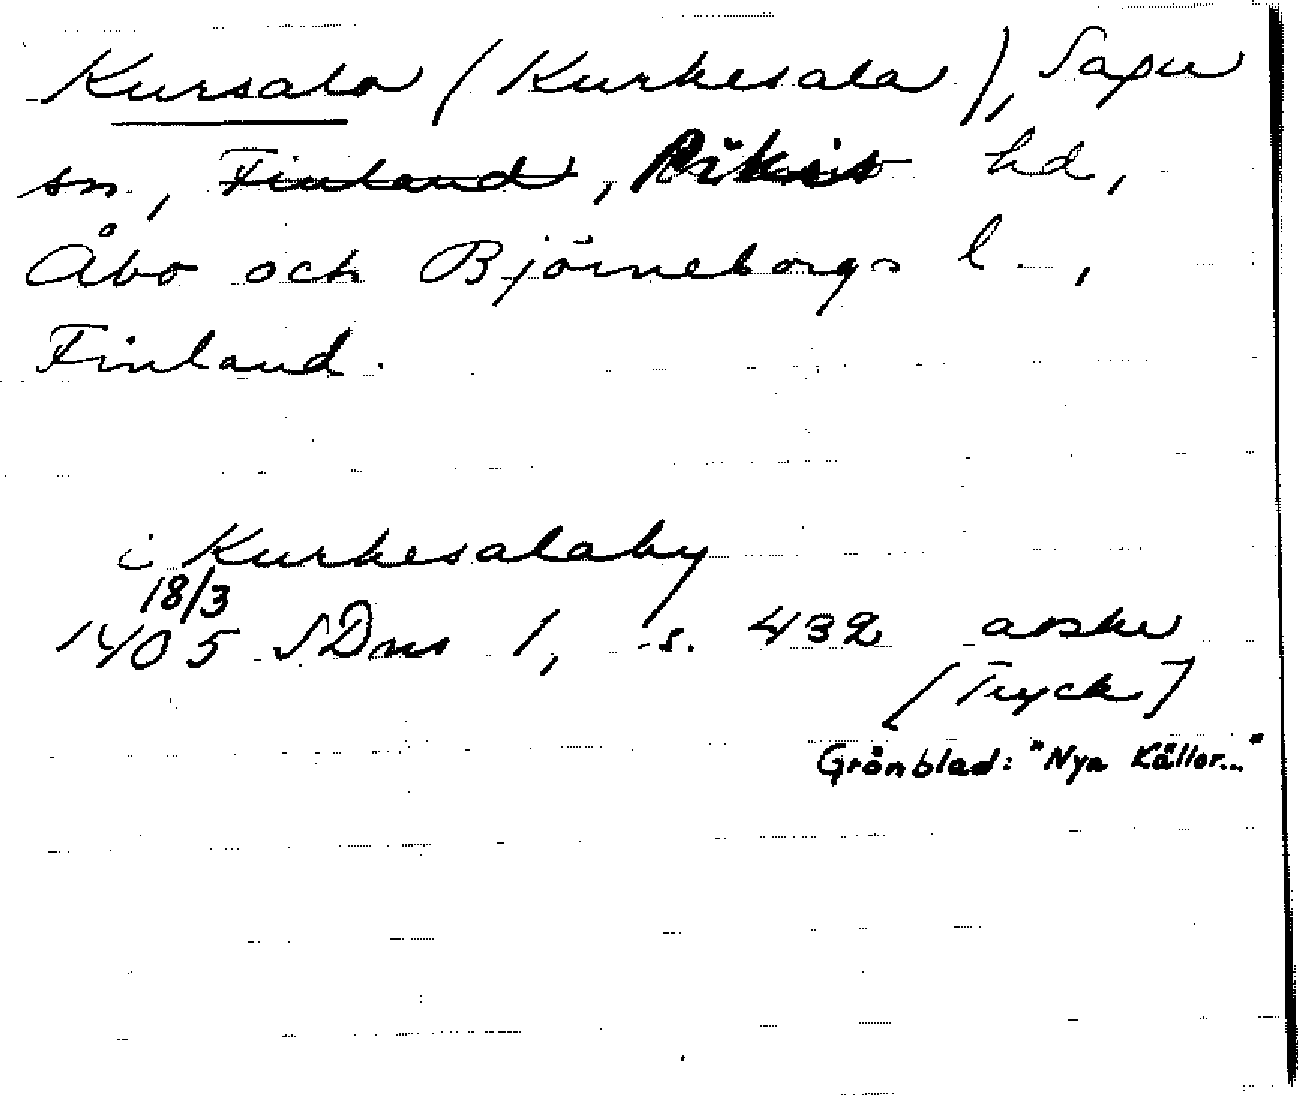 Kursala (Kurkesala), Sagu
sn, Finland, Pikis hd,
Åbo och Björneborgs l.,
Finland.
i Kurkesalaby
18/3
1405 SDns 1, s. 432 avskr
[Tryck]
Grönblad: "Nya Källor..."